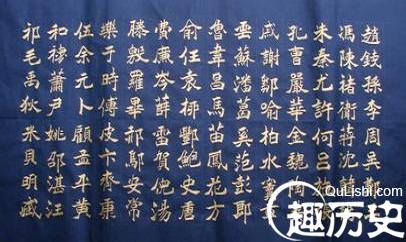 趙錢孫李周吳
馮陳褚衛蔣沈
朱秦尤許何呂
孔曹嚴華金魏陶
戚謝鄒喻柏水竇章
雲蘇潘葛奚范彭郎
魯韋昌馬苗鳳花方
俞任袁柳酆鮑史唐
費廉岑薛雷賀倪湯
滕殷羅畢郝鄔安常
樂于時傅皮卞齊康
伍余元卜顧孟平黃
和穆蕭尹姚邵湛汪
祁毛禹狄米貝明臧
QuLishi.com
趣历史